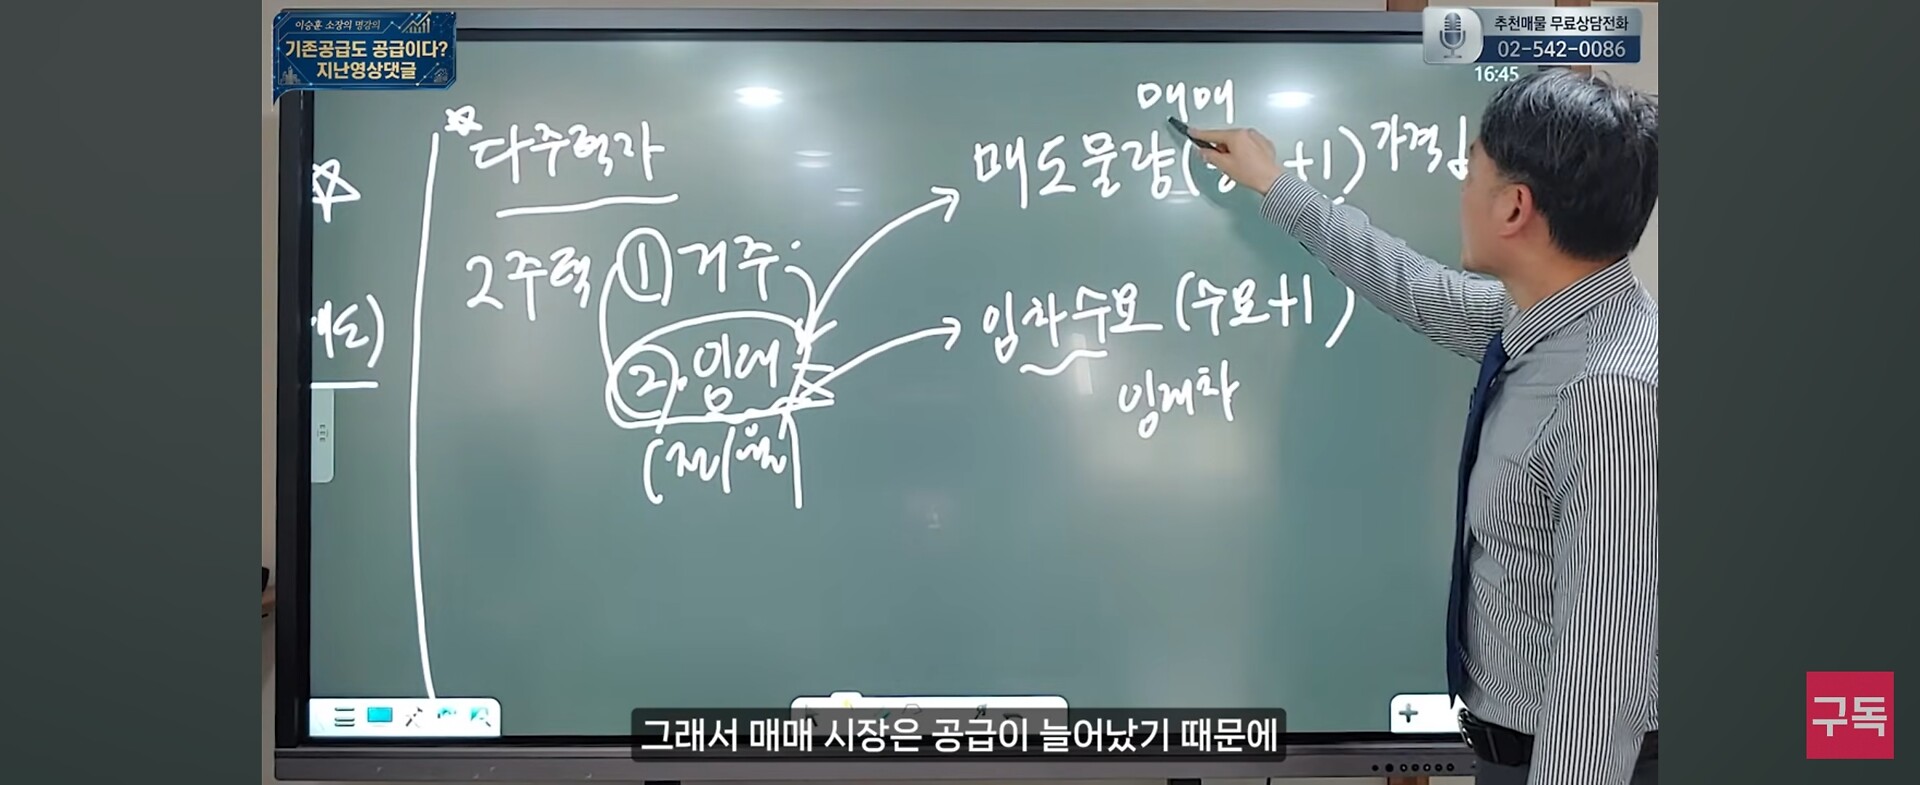 이승훈 소장의 명강의
기존공급도 공급이다?
지난영상댓글
추천매물 무료상담전화
02-542-0086
16:45
다주택자
2주택 ① 거주
② 임대
(전/월)
매매
매도물량 ( +1) 가격
임차수요 (수요+1)
임대차
그래서 매매 시장은 공급이 늘어났기 때문에
구독